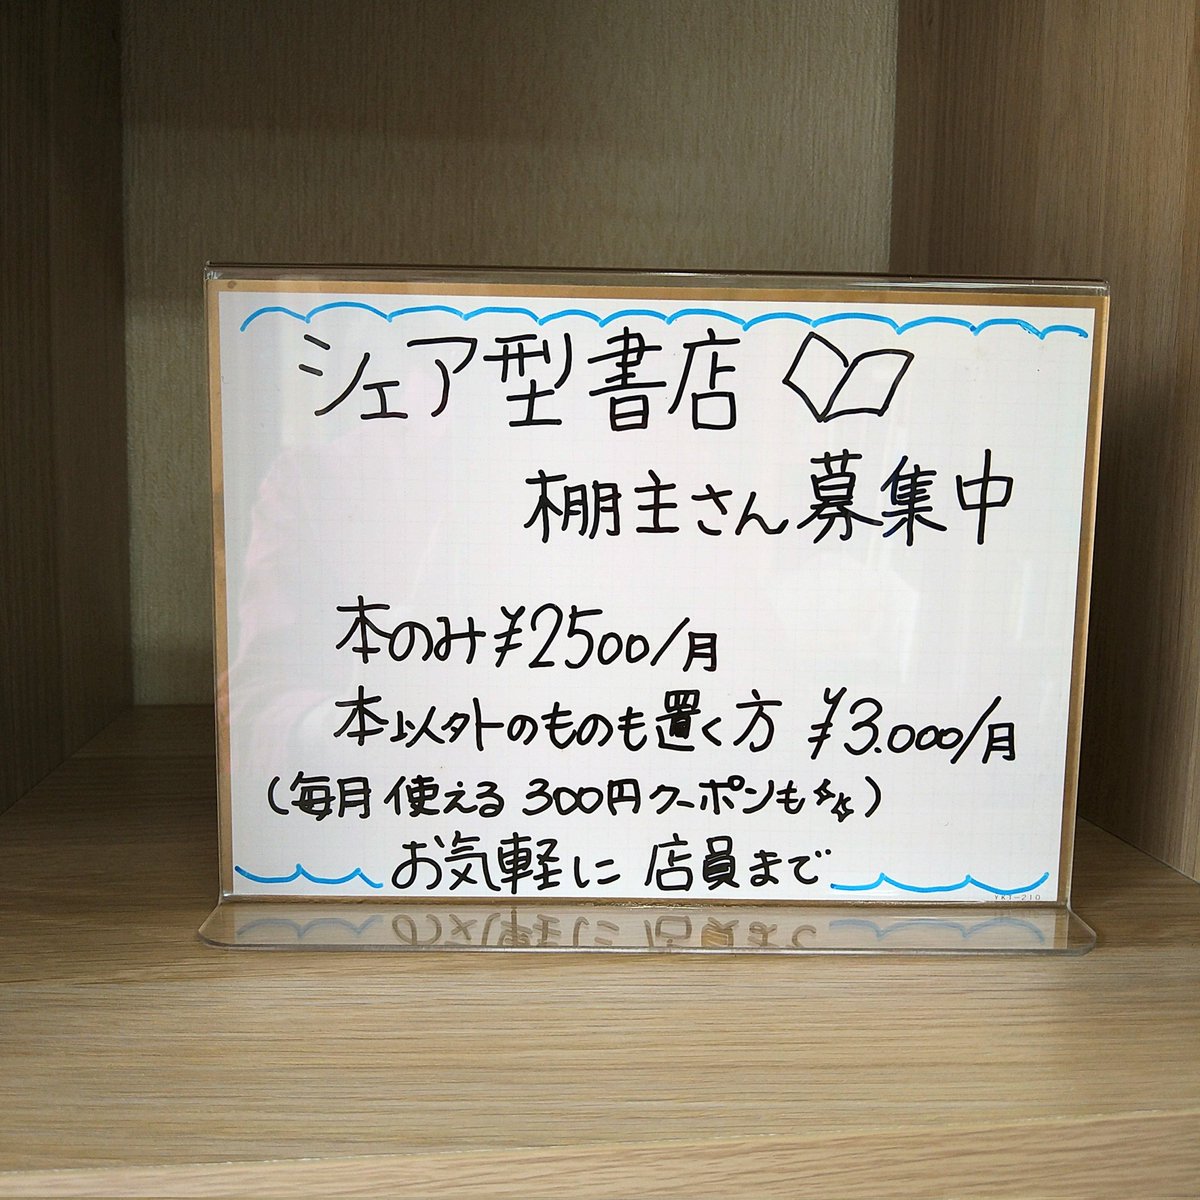 シェア型書店
棚主さん募集中
本のみ¥2500/月
本以外のものも置く方 ¥3.000/月
(毎月使える300円クーポンも)
お気軽に 店員まで
YKT-210